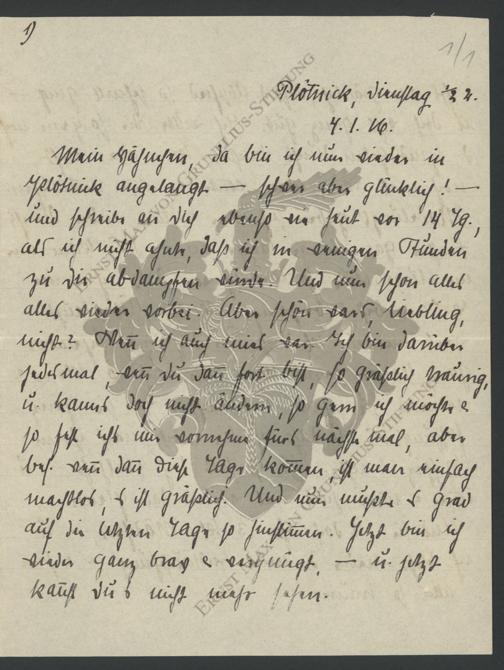 1)
1/1
Plötnick, Dienstag ½ 2.
4. 1. 16.
Mein Hähnchen, da bin ich nun wieder in
Plötnick angelangt — schwer aber glücklich! —
und schreibe an dich ebenso wie heut vor 14 Tg.,
als ich nicht ahnte, daß ich in wenigen Stunden
zu dir abdampfen würde. Und nun schon alles
alles wieder vorbei. Aber schön wars, Liebling,
nicht? Wenn ich auch mies war. Ich bin darüber
jedesmal, wenn du dann fort bist, so gräßlich traurig,
u. kanns doch nicht ändern, so gern ich möchte &
so fest ichs mir vornehme fürs nächste mal, aber
bes. wenn dann diese Tage kommen, ist man einfach
machtlos, s ist gräßlich. Und nun mußte s grad
auf die letzten Tage so hinstimmen. Jetzt bin ich
wieder ganz brav & vergnügt, — u. jetzt
kannst dus nicht mehr sehen.
ERNST MAX VON GRUNELIUS-STIFTUNG
ERNST MAX VON GRUNELIUS-STIFTUNG